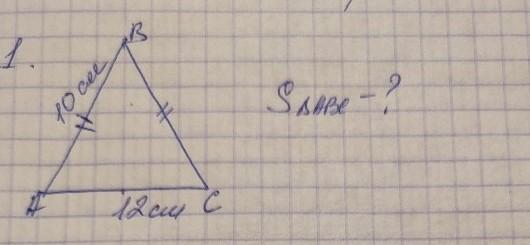 1.
B
10 см
A
12 см
C
S△ABC - ?